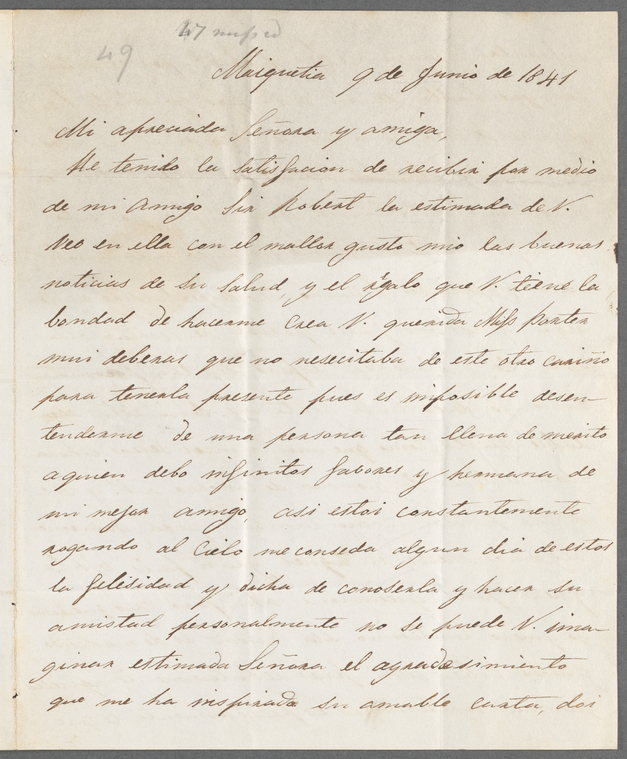 49
Maiquetia 9 de Junio de 1841
Mi apreciada Señora y amiga,
He tenido la satisfacion de recibir por medio
de mi amigo Sir Robert la estimada de V.
veo en ella con el mallor gusto mio las buenas
noticias de su salud, y el rgalo que V. tiene la
bondad de hacerme Crea V. querida Miss Porter
mui deberas que no nesecitaba de este otro cariño
para tenerla presente pues es imposible desen-
tenderme de una persona tan llena de merito
aquien debo infinitos fabores y hermana de
mi mejor amigo, asi estoi constantemente
rogando al Cielo me conseda algun dia de estos
la felisidad y dicha de conoserla y hacer su
amistad personalmente no se puede V. ima-
ginar estimada Señora el agradesimiento
que me ha inspirado su amable carta, doi